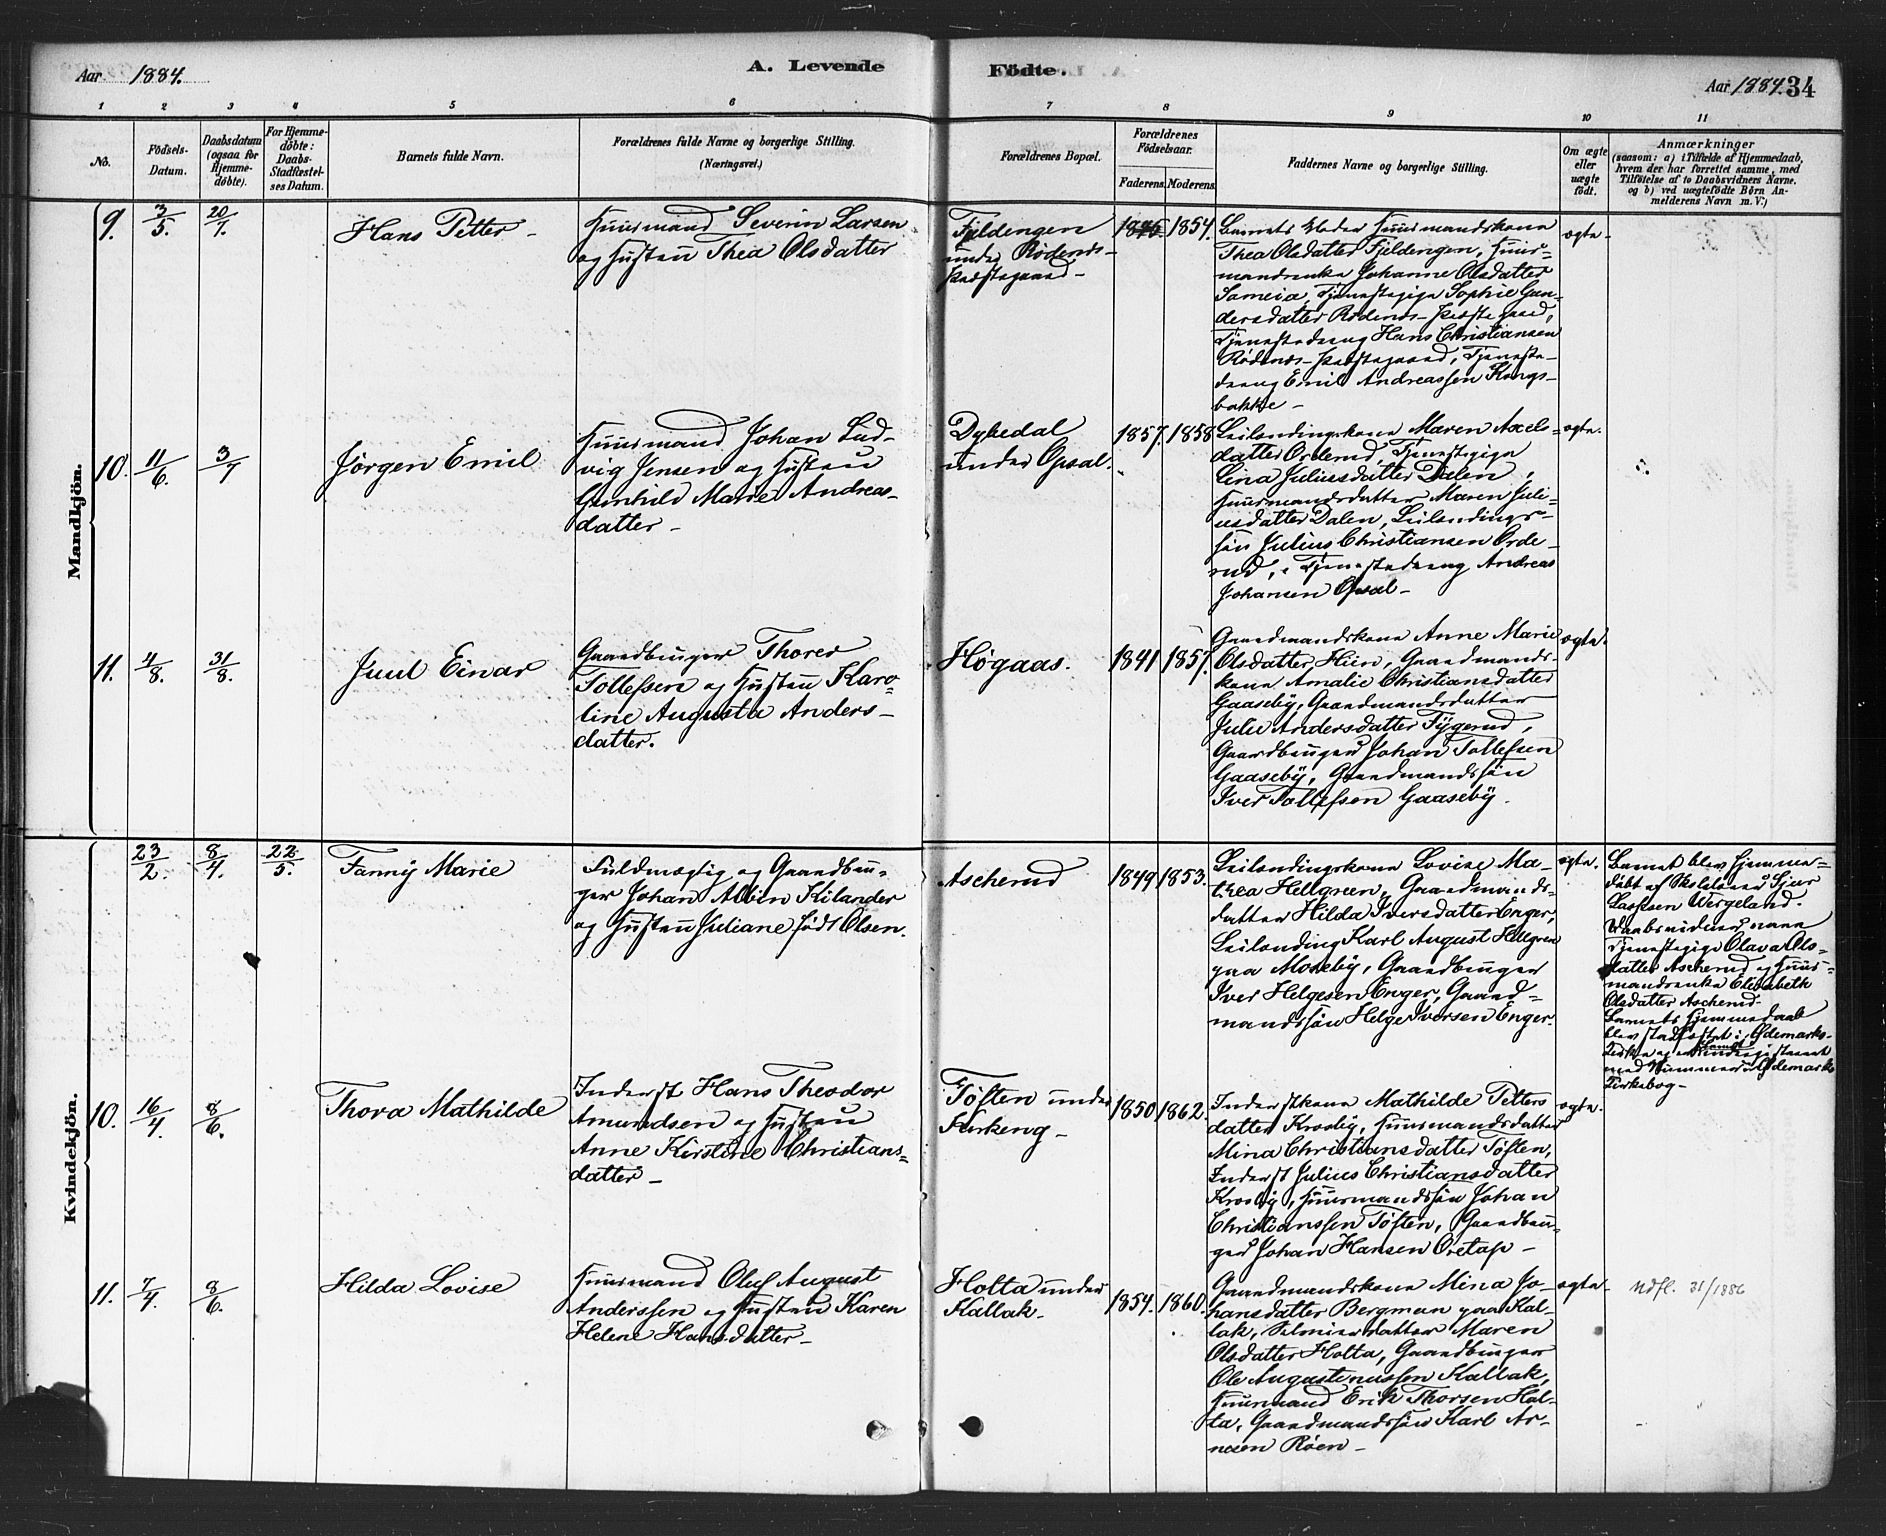 Aar 1884.
A. Levende
Födte.
Aar 1884. 34
1 2 3 4 5 6 7 8 9 10 11
No.
Födsels-
Datum.
Daabsdatum
(ogsaa for
Hjemme-
döbte).
For Hjemme-
döbte:
Daabs-
Stadfæstel-
ses Datum.
Barnets fulde Navn.
Forældrenes fulde Navne og borgerlige Stilling.
(Næringsvei.)
Forældrenes Bopæl.
Forældrenes
Födselsaar.
Faderens. Moderens.
Faddernes Navne og borgerlige Stilling.
Om ægte
eller
uægte
födt.
Anmærkninger
(saasom: a) i Tilfælde af Hjemmedaab,
hvem der har forrettet samme, med
Tilföielse af to Daabsvidners Navne,
og b) ved uægtefödte Börn An-
melderens Navn m. V.)
Mandkjön.
9. 3/5. 20/7.
Hans Petter -
Huusmand Severin Larsen
og Hustru Thea Olsdatter
Fjeldengen
under Rødenes-
Præstegaard -
1854.
Barnets Moder Huusmandskone
Thea Olsdatter Fjeldengen, Huus-
mandsenke Johanne Olsdatter
Tjenestepige Sophie Gun-
dersdatter Rødenes-Præstegaard,
Tjenestedreng Hans Christiansen
Rødenes-Præstegaard, Tjeneste-
dreng Emil Andreassen Kongs-
bakke -
ægte -
10. 11/6. 3/7
Jørgen Emil
Huusmand Johan Lud-
vig Jensen og Hustru
Gunhild Marie Andreas-
datter -
Dybedal
under Opsal.
1857. 1858
Leilændingskone Maren Axels-
datter Orderud, Tjenestepige
Lina Juliusdatter Dalen,
Huusmandsdatter Maren Juli-
usdatter Dalen, Leilændings-
søn Julius Christiansen Orde-
rud, Tjenestedreng Andreas
Johansen Opsal -
ægte.
11. 4/8. 31/8.
Juul Einar
Gaardbruger Thorer
Tollefsen og Hustru Karo-
line Augusta Anders-
datter.
Høgaas.
1841 1857.
Gaardmandskone Anne Marie
Olsdatter Hien, Gaardmands-
kone Amalie Christiansdatter
Gaaseby, Gaardmandsdatter
Julie Andersdatter Tygerud,
Gaardbruger Johan Tollefsen
Gaaseby, Gaardmandssøn
Iver Tollefsen Gaaseby.
ægte.
Kvindekjön.
23/2. 8/4. 22/5.
Fanny Marie
Fuldmægtig og Gaardbru-
ger Johan Albin Kilander
og Hustru Juliane født Olsen.
Ascherud
1849 1853.
Leilændingskone Lovise Ma-
thea Hellgreen, Gaardmands-
datter Hilda Iversdatter Enger,
Leilænding Karl August Hellgren
paa Moseby, Gaardbruger
Iver Helgesen Enger, Gaard-
mandssøn Helge Iversen Enger.
ægte.
Barnet blev hjemme-
døbt af Skolelærer Sjur
Lassesen Wergeland.
Daabsvidner vare
Tjenestepige Olava Ols-
datter Ascherud og Huus-
mandsenke Elisabeth
Olsdatter Ascherud.
Barnets Hjemmedaab
blev stadfæstet i Ødemarks-
Kirke og
med Nummer i Ødemarks
Kirkebog -
10. 16/4. 8/6.
Thora Mathilde
Inderst Hans Theodor
Amundsen og Hustru
Anne Kirstine Christians-
datter -
Tøften under
Kirkeng -
1850 1862.
Inderstkone Mathilde Petters
datter Krosby, Huusmandsdatter
Mina Christiansdatter Tøften,
Inderst Julius Christiansdatter
Krosby, Huusmandssøn Johan
Christianssen Tøften, Gaardbru-
ger Johan Hansen Oretap -
ægte.
11. 7/4. 8/6.
Hilda Lovise
Huusmand Oluf August
Anderssen og Hustru Karen
Helene Hansdatter -
Holta under
Kallak -
1854. 1860.
Gaardmandskone Mina Jo-
hansdatter Bergman paa Kal-
lak, Maren
Olsdatter Holta, Gaardbruger
Ole Augustinussen Kallak,
Huusmand Erik Thorsen Hol-
ta, Gaardmandssøn Karl Ar-
nesen Røen -
ægte.
Udfl. 31/1886